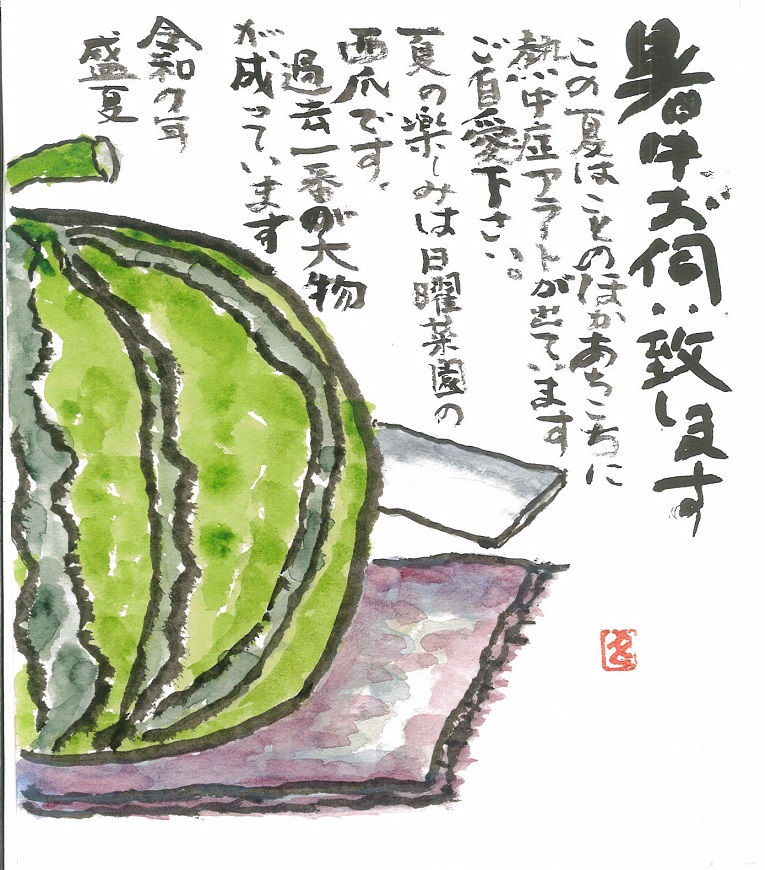 暑中お伺い致します
この夏はことのほかあちこちに
熱中症アラートが出ています
ご自愛下さい。
夏の楽しみは日曜菜園の
西瓜です、
過去一番の大物
が、成っています
令和7年
盛夏